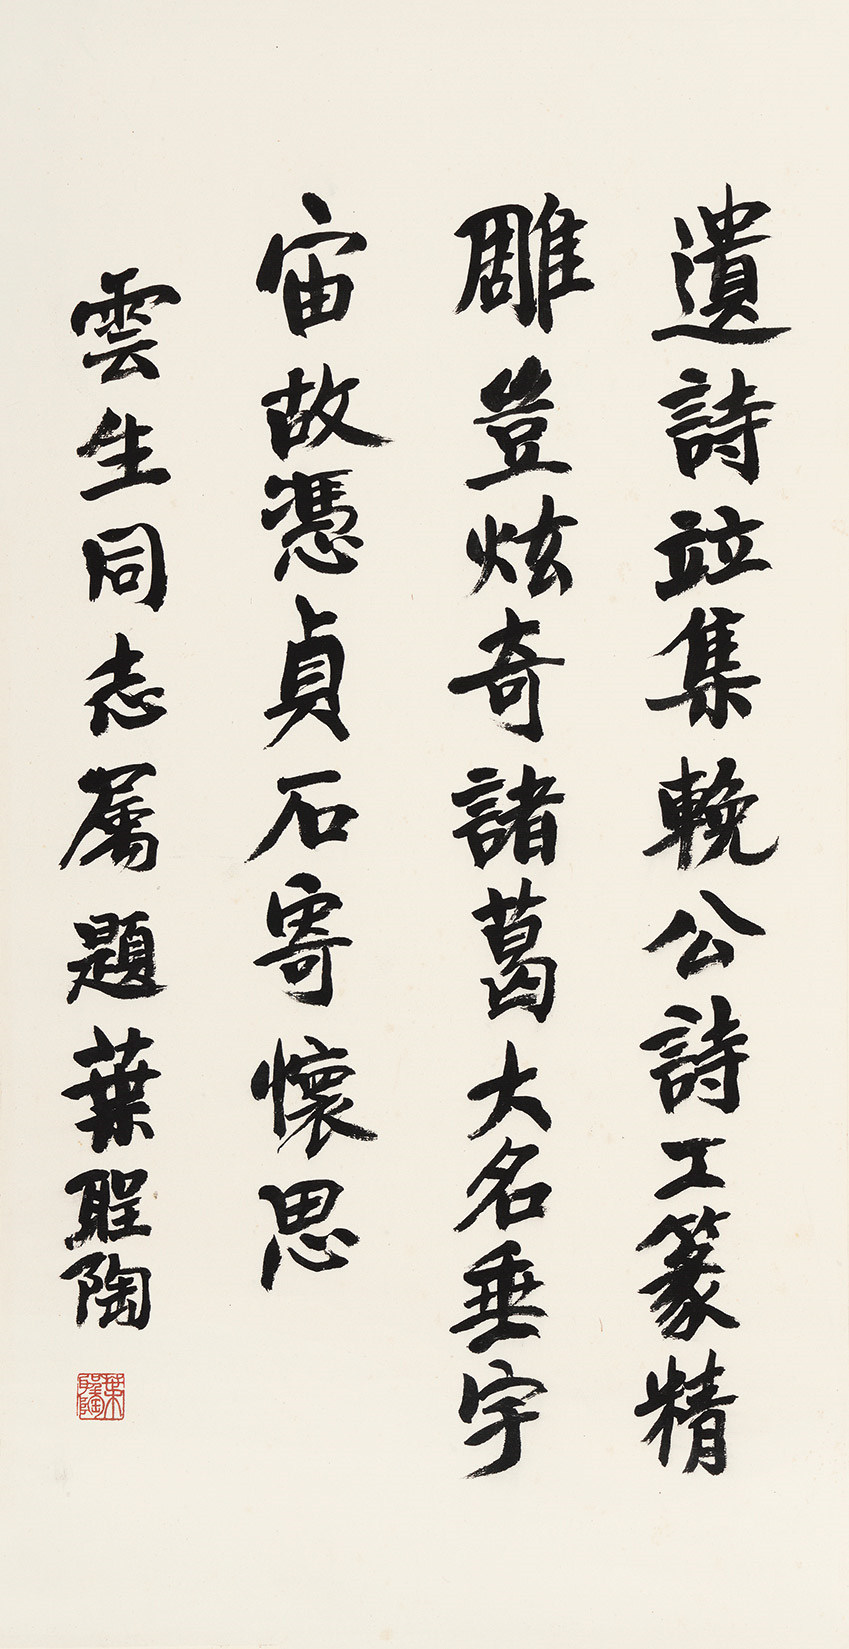 遺詩竝集輓公詩工篆精
雕豈炫奇諸葛大名垂宇
宙故憑貞石寄懷思
雲生同志屬題葉聖陶
葉聖陶